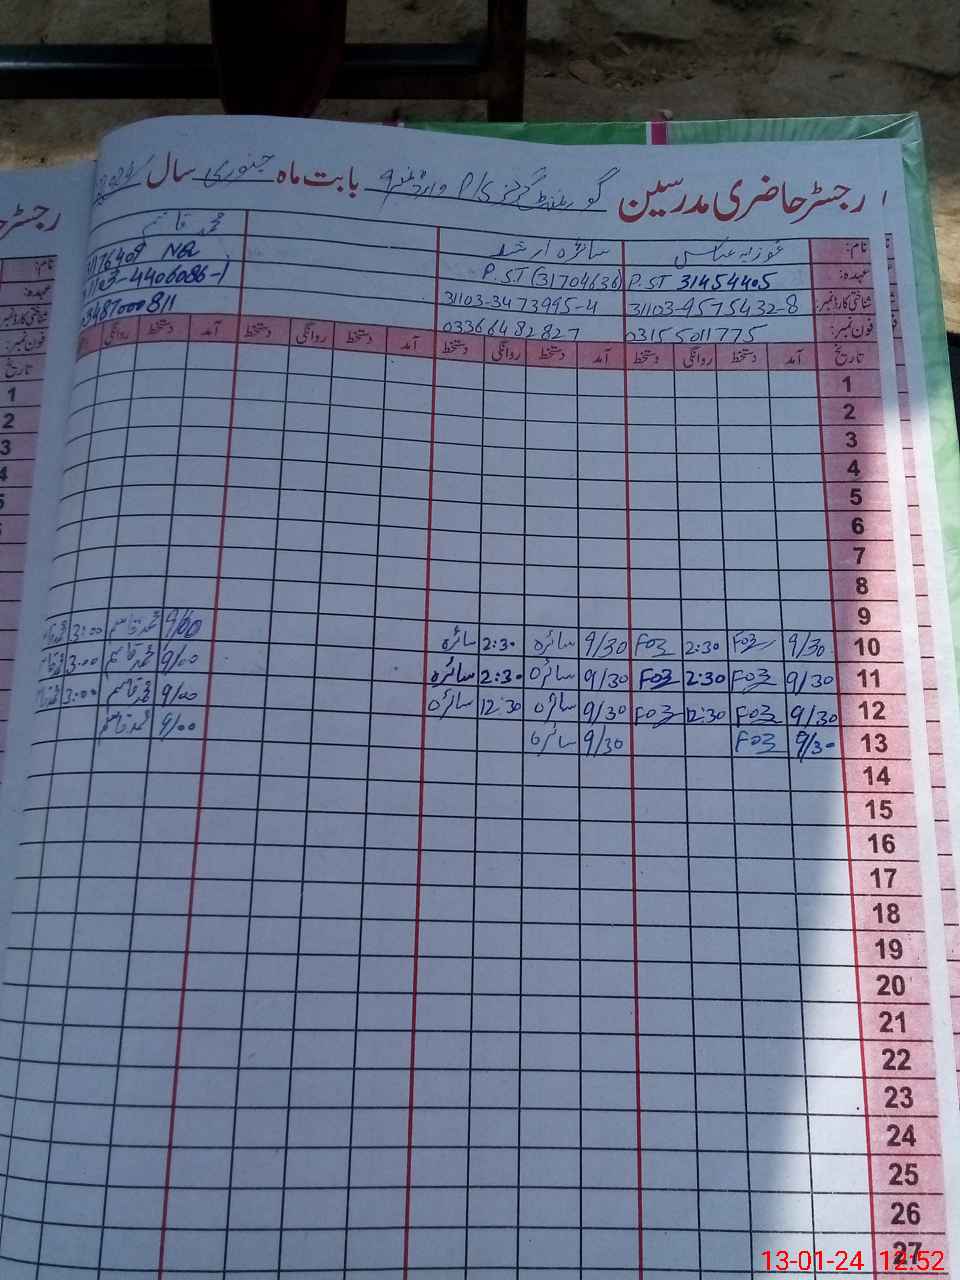 رجسٹر حاضری مدرسین گورنمنٹ گرلز P/S وارڈ نمبر 9 بابت ماہ جنوری سال 2024
نام: فوزیہ عباس سائرہ ارشد محمد قاسم
عہدہ: P.ST 31454405 P.S.T (31704636)
شناختی کارڈ نمبر: 31103-9575432-8 31103-3473995-4 31103-4406086-1
فون نمبر: 03155011775 03366482827 03487000811
تاریخ آمد دستخط روانگی دستخط آمد دستخط روانگی دستخط آمد دستخط روانگی دستخط آمد دستخط روانگی
1
2
3
4
5
6
7
8
9
10 9/30 Foz 2:30 Foz 9/30 سائرہ 2:30 سائرہ 9/00 محمد قاسم 3:00
11 9/30 Foz 2:30 Foz 9/30 سائرہ 2:30 سائرہ 9/00 محمد قاسم 3:00
12 9/30 Foz 12:30 Foz 9/30 سائرہ 12:30 سائرہ 9/00 محمد قاسم 3:00
13 9/30 Foz 9/30 سائرہ 9/00 محمد قاسم
14
15
16
17
18
19
20
21
22
23
24
25
26
27
13-01-24 12:52